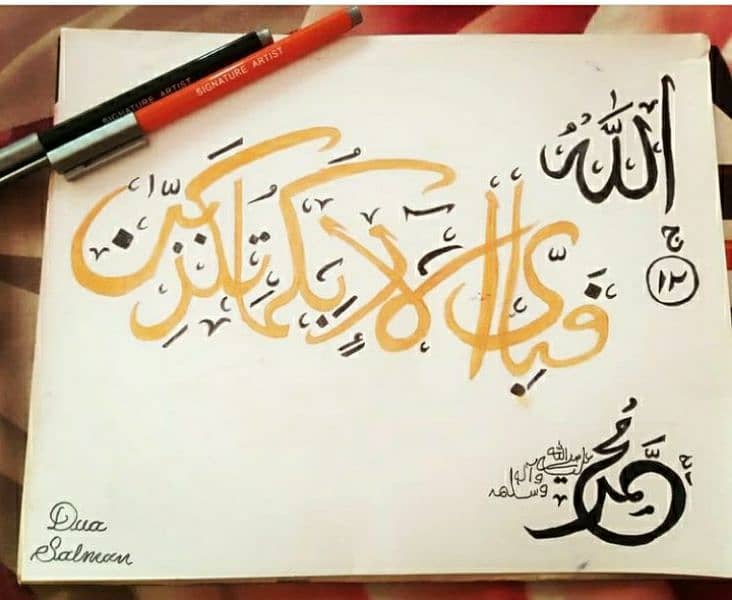 SIGNATURE ARTIST
SIGNATURE ARTIST
اللَّهُ
ج
١٢
فَبِاَيِّ الَاءِ رَبِّكُمَا تُكَذِّبٰنِ
مُحَمَّد
صلى الله عليه
وآله
وسلم
Dua
Salman